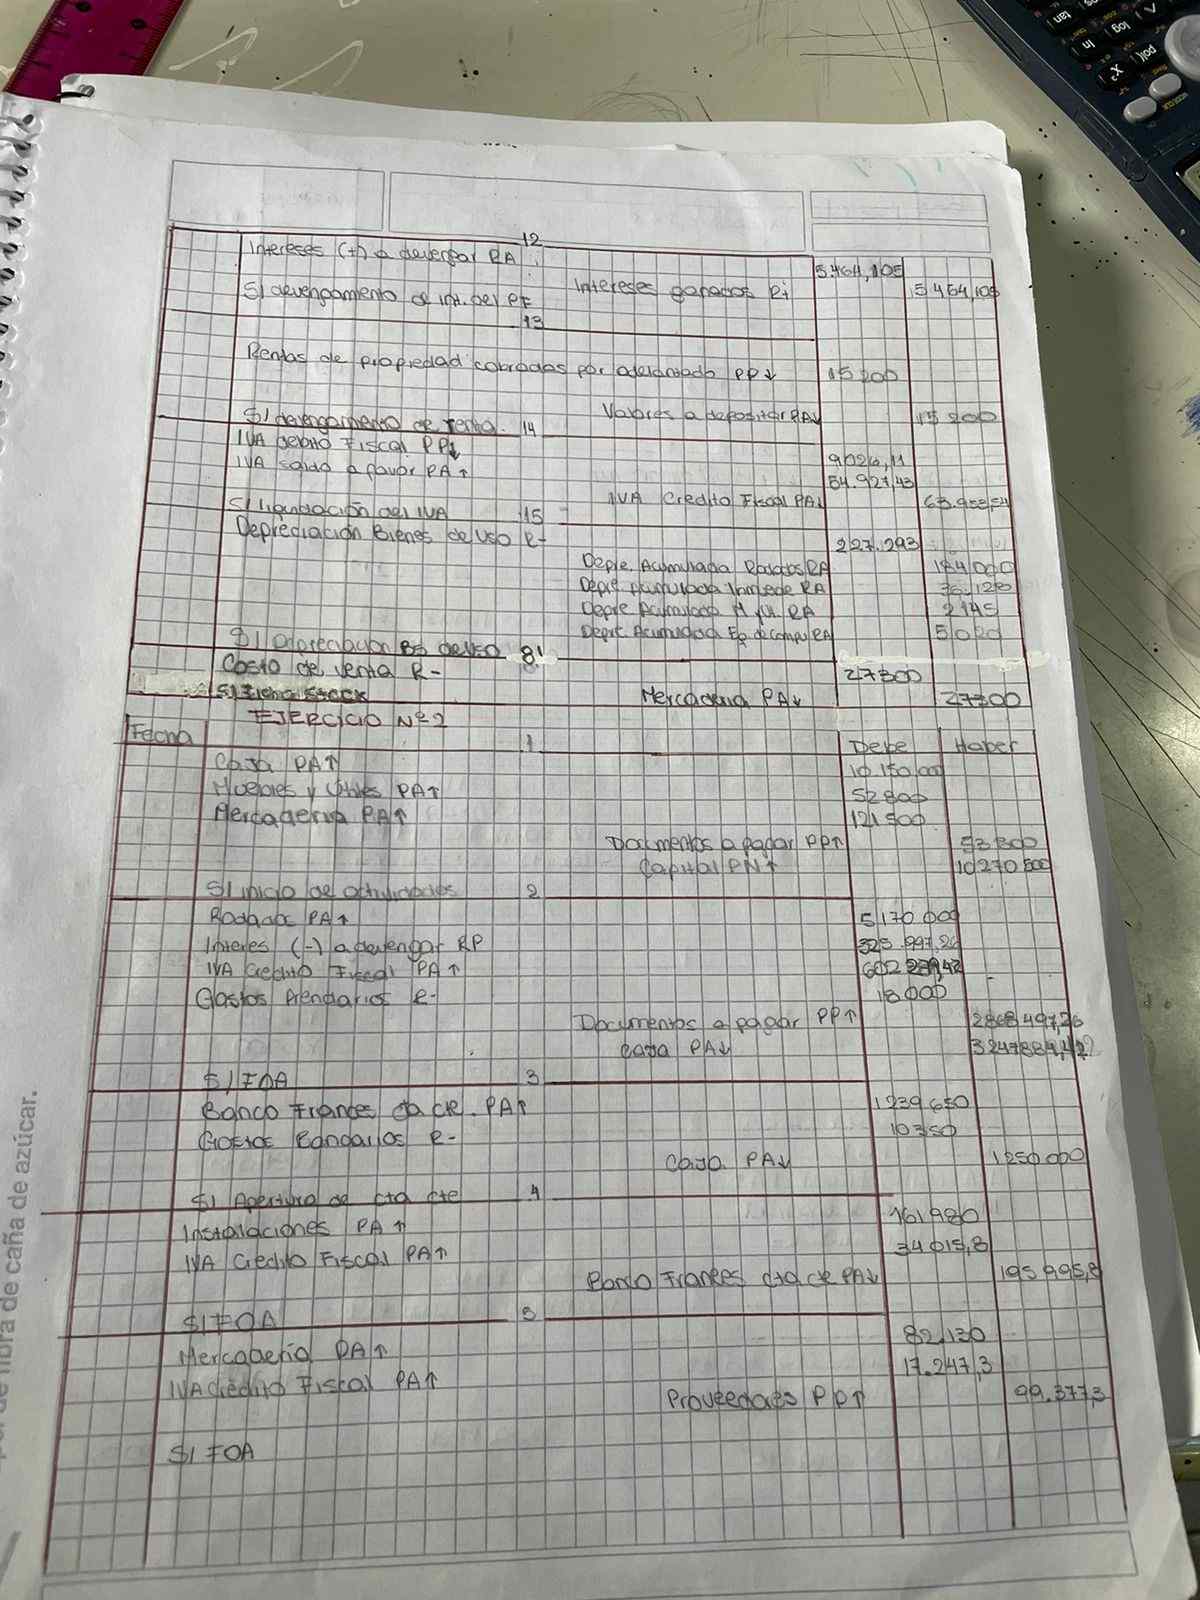 12
Intereses (+) a devengar RA 5.464,105
Intereses ganados R+ 5.464,105
S/ devengamiento de int. del PF
13
Rentas de propiedad cobradas por adelantado PP↓ 15200
Valores a depositar PA↓ 15200
S/ devengamiento de renta. 14
IVA debito Fiscal PP↓ 9026,11
IVA saldo a favor PA↑ 54.927,43
IVA Crédito Fiscal PA↓ 63.953,54
S/ liquidación del IVA 15
Depreciación Bienes de Uso R- 227.293
Depre. Acumulada Rodados RA 184000
Depre Acumulada Inmueble RA 36.128
Depre Acumulada M y U. RA 2145
Depre. Acumulada Eq. de compu RA 5020
S/ Depreciacion Bs de uso 8'
Costo de venta R- 27300
Mercaderia PA↓ 27300
S/ Ficha Stock
EJERCICIO Nº2
Fecha 1 Debe Haber
Caja PA↑ 10.150.000
Muebles y Utiles PA↑ 52800
Mercaderia PA↑ 121500
Documentos a pagar PP↑ 53800
Capital PN↑ 10270500
S/ inicio de actividades 2
Rodado PA↑ 5.170.000
Interes (-) a devengar RP 325.997,26
IVA Credito Fiscal PA↑
Gastos Prendarios R- 18000
Documentos a pagar PP↑ 2868497,26
Caja PA↓ 3247884,42
S/ FOA 3
Banco Frances cta cte. PA↑ 1239650
Gastos Bancarios R- 10350
Caja PA↓ 1250.000
S/ Apertura de cta cte 4
Instalaciones PA↑ 161980
IVA Crédito Fiscal PA↑ 34015,8
Banco Frances cta cte PA↓ 195995,8
S/ FOA 5
Mercaderia PA↑ 82.130
IVA Crédito Fiscal PA↑ 17.247,3
Proveedores PP↑ 99.377,3
S/ FOA
bra de caña de azúcar.